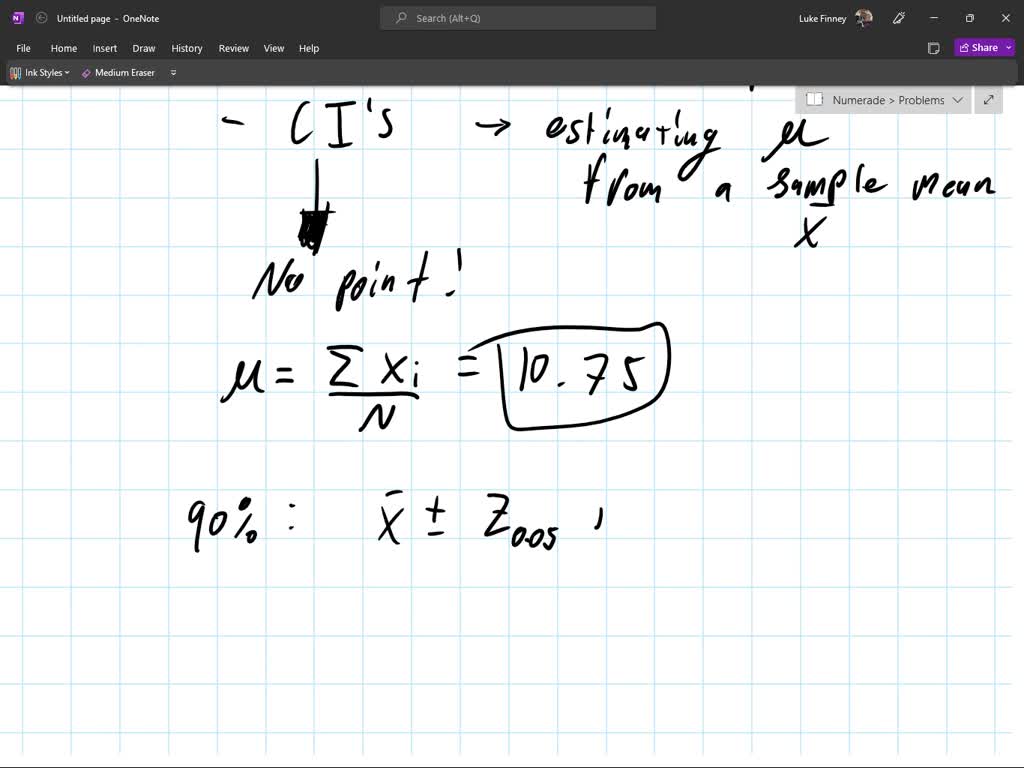 Untitled page - OneNote
Search (Alt+Q)
Luke Finney
File Home Insert Draw History Review View Help
Share
Ink Styles
Medium Eraser
Numerade > Problems
- CI's → estimating μ
from a sample mean
x̄
No point!
μ = Σ xi / N = 10.75
90% : x̄ ± Z0.05